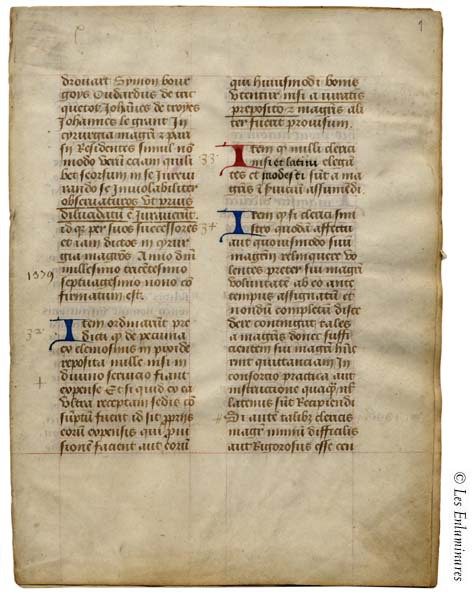 1
drouart Symon bour
goys Oudardus de tric
quetot Johānes de troyes
Johannes le grant In
cyrurgia magrī & pari
sii Residentes simul nō
modo verū etiam quili
bet seorsum in se Iurevi
rando se Inviolabiliter
observaturos Ut prius
dilucidatū ē Iuraverūt.
id qz per suos successores
et iam dictos in cyrur
gia magros. Anno dnī
millesimo tricentesimo
septuagesimo nono cō
firmatum est.
1379
32
Item ordinarūt pre
dicti qd de pecunia
elemosinis in pixide
reposita mille missi in
divino servicio fiant
expense Et si quid
ultra receptam sedis cō
sumptū fuerit id sit prop̄riis
eorū expensis qui
sionem faciant aut eorū
qui huiusmodi bonis
utentur nisi a iuratis
preposito & magrīs ali
ter fuerit provisum.
33
Item qd nulli clerici
nisi et latini elegā
tes et modesti sūt a ma
grīs assumēdi.
34
Item qd si clerici sini
stro quodā affectu
aut quovismodo suū
magrm relinquere vo
lentes preter sui magrī
voluntatē ab eo ante
tempus assignatū et
nondū completū disce
dere contingat tales
a magrīs donec suffi
cientem sui magrī hūc
rint quictanciam In
consorcio practica aut
instructione quaqz nul
latenus sūt Recipiendi
Si autē talibz clericis
magr nimiū difficilis
aut Rigorosus esse cen
© Les Enluminures